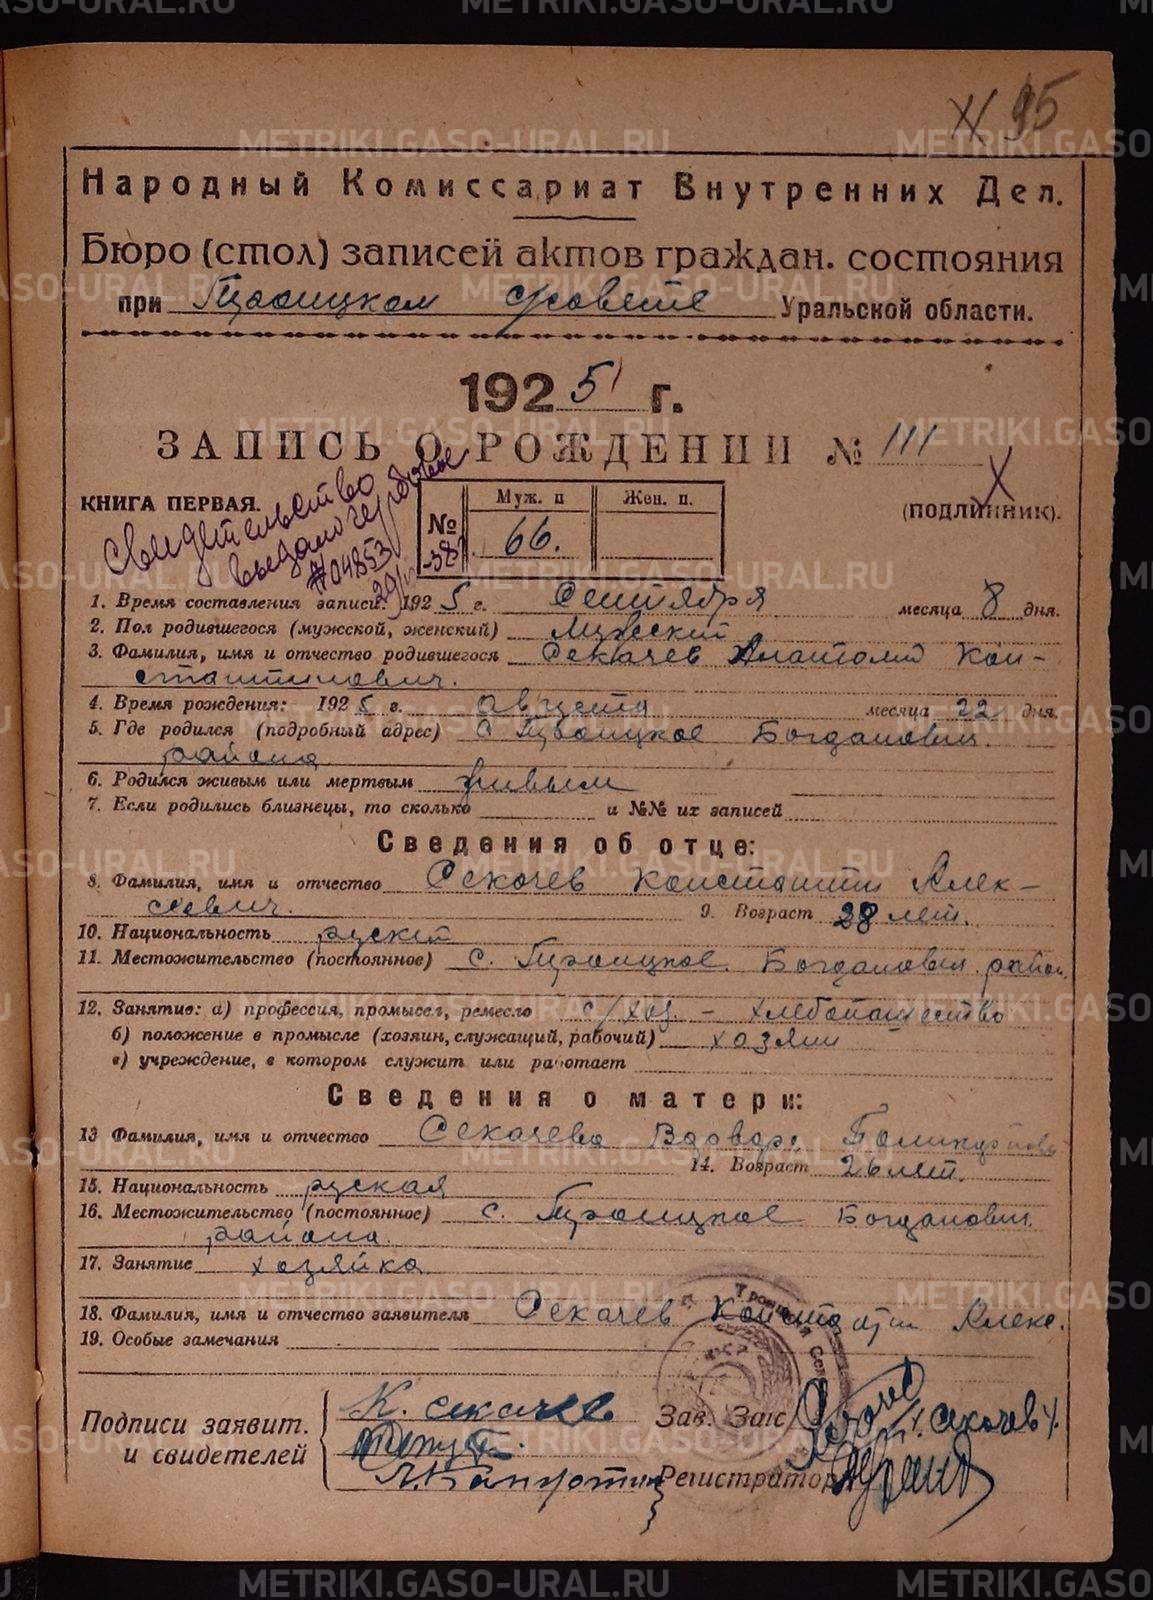 95
Народный Комиссариат Внутренних Дел.
Бюро (стол) записей актов граждан. состояния
при Троицком с/совете Уральской области.
1925 г.
ЗАПИСЬ О РОЖДЕНИИ № 111
КНИГА ПЕРВАЯ.
(ПОДЛИННИК).
Свидетельство
выдано гербовое
#04853
№ Муж. п Жен. п.
66.
1. Время составления записи: 1925 г. Сентября месяца 8 дня.
2. Пол родившегося (мужской, женский) Мужеский
3. Фамилия, имя и отчество родившегося Секачев Анатолий Кон-
стантинович.
4. Время рождения: 1925 г. августа месяца 22 дня.
5. Где родился (подробный адрес) С Троицкое Богданович.
района
6. Родился живым или мертвым живым
7. Если родились близнецы, то сколько и №№ их записей
Сведения об отце:
8. Фамилия, имя и отчество Секачев Констонтин Алек-
сеевич. 9. Возраст 28 лет.
10. Национальность руский
11. Местожительство (постоянное) с. Троицкое. Богданович. район
12. Занятие: а) профессия, промысел, ремесло с/хоз. - хлебопашество
б) положение в промысле (хозяин, служащий, рабочий) хозяин
в) учреждение, в котором служит или работает
Сведения о матери:
13 Фамилия, имя и отчество Секачева
14. Возраст 26 лет.
15. Национальность руская
16. Местожительство (постоянное) с. Троицкое Богданович.
района.
17. Занятие хозяйка
18. Фамилия, имя и отчество заявителя Секачев Констонтин Алекс.
19. Особые замечания
Подписи заявит.
и свидетелей
К. секачев
Зав. Загс
секачев
Регистратор
METRIKI.GASO-URAL.RU